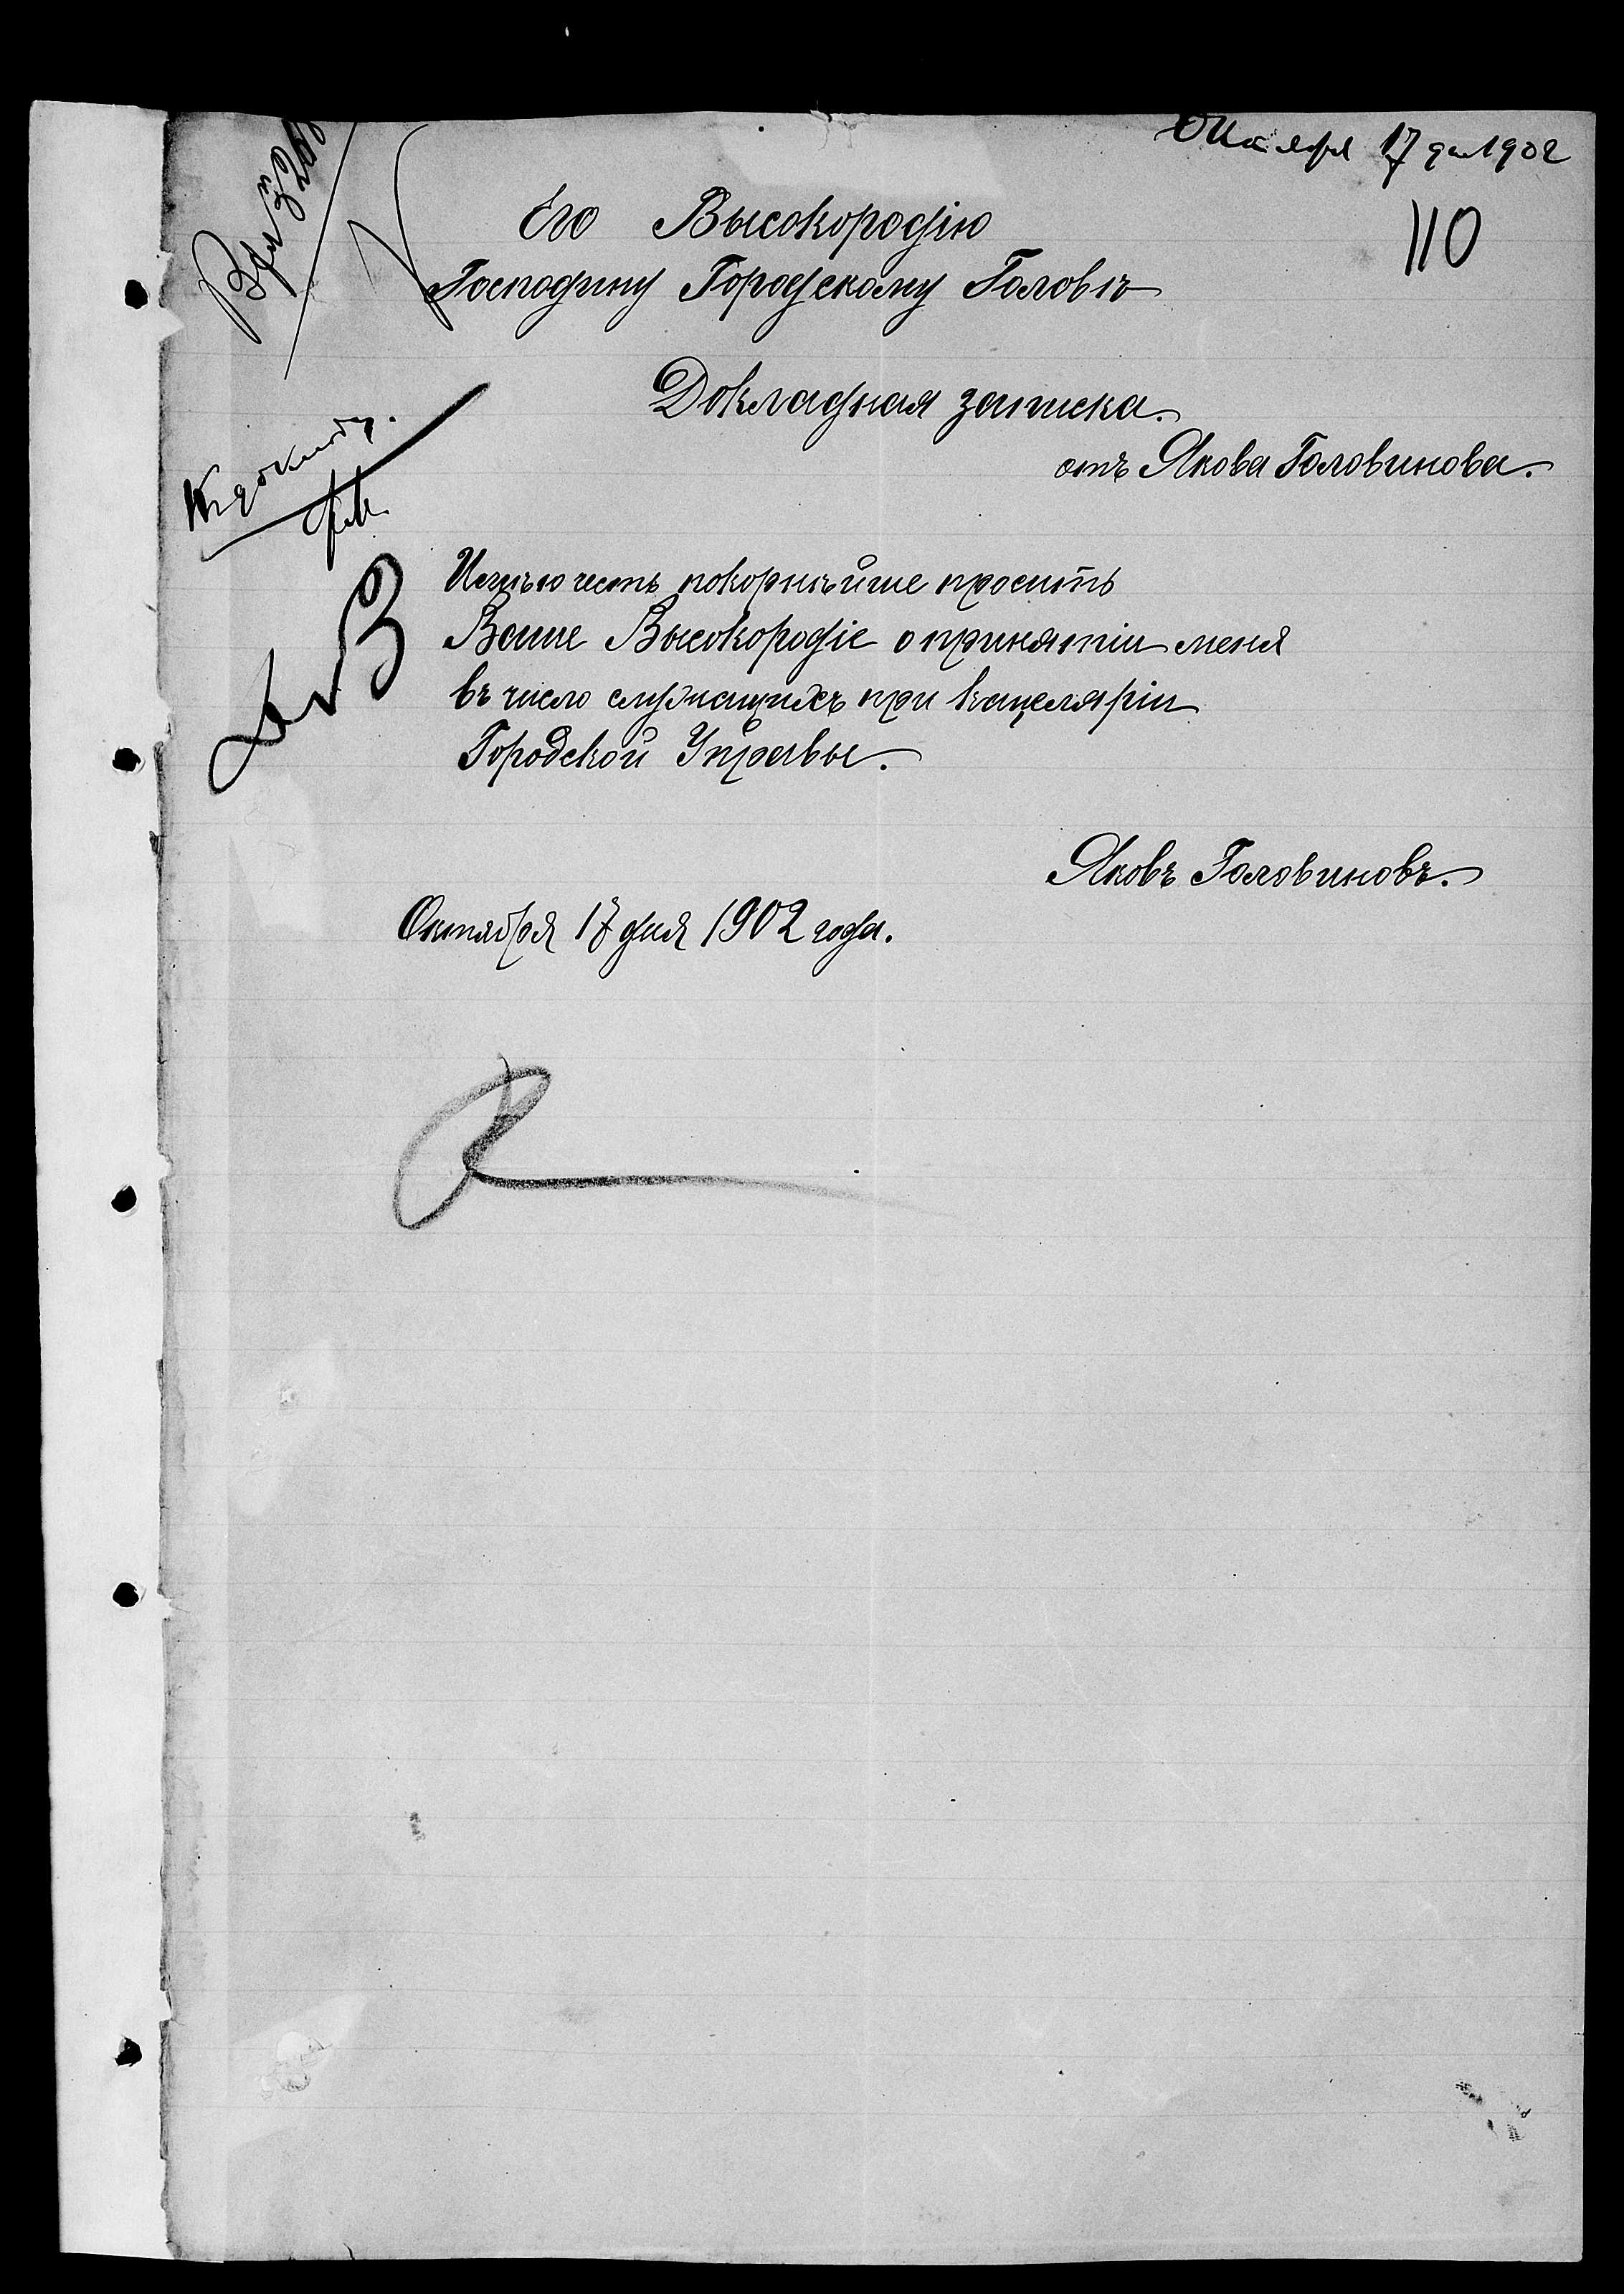 Октября 17 дня 1902
110
Его Высокородію
Господину Городскому Головѣ
Докладная записка.
отъ Якова Головинова.
Къ докладу.
Имѣю честь покорнѣйше просить
Ваше Высокородіе о принятіи меня
въ число служащихъ при канцеляріи
Городской Управы.
Яковъ Головиновъ.
Октября 17 дня 1902 года.